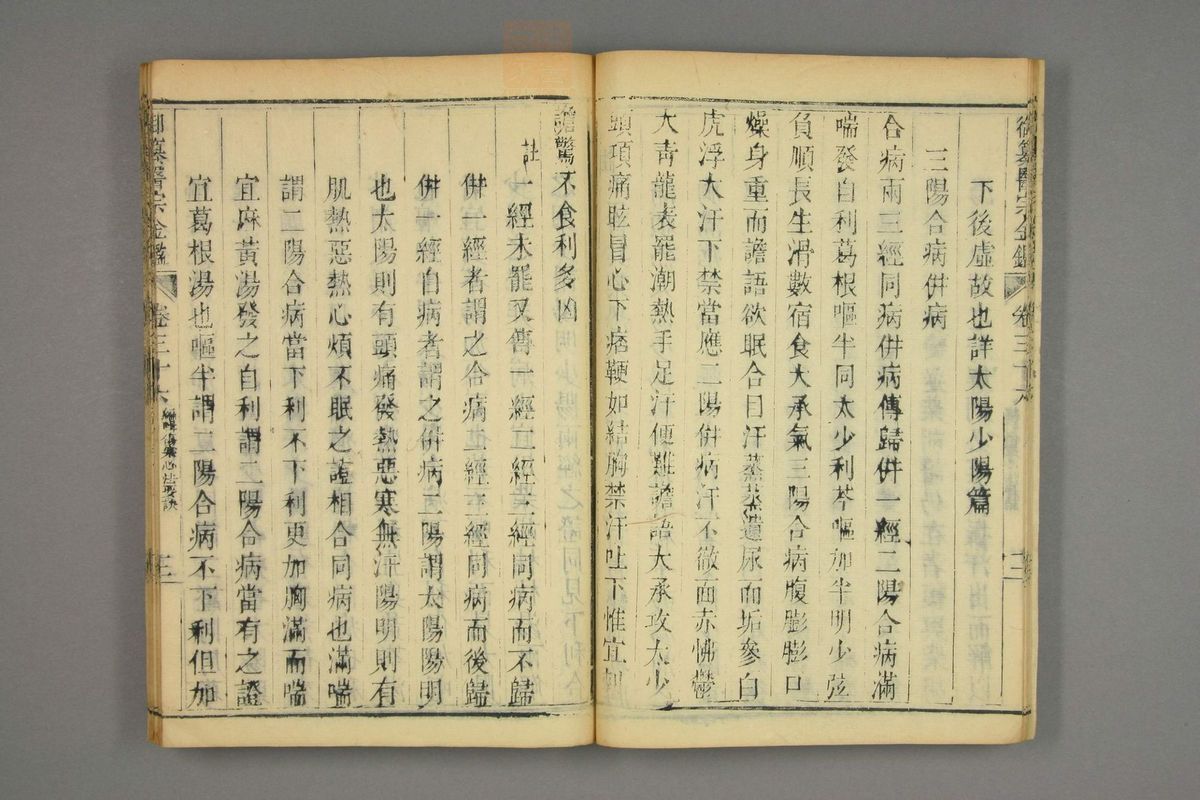 御纂醫宗金鑑 卷三十六 三
下後虛故也詳太陽少陽篇
三陽合病併病
合病兩三經同病併病傳歸併一經二陽合病滿
喘發自利葛根嘔半同太少利芩嘔加半明少弦
負順長生滑數宿食大承氣三陽合病腹膨膨口
燥身重而譫語欲眠合目汗蒸蒸遺尿而垢參白
虎浮大汗下禁當應二陽併病汗不徹面赤怫鬱
大青龍表罷潮熱手足汗便難譫語大承攻太少
頭項痛眩冒心下痞鞕如結胸禁汗吐下惟宜刺
譫驚不食利多凶
註 一經未罷又傳一經二經三經同病而不歸
併一經者謂之合病也二經三經同病而後歸
併一經自病者謂之併病二陽謂太陽陽明
也太陽則有頭痛發熱惡寒無汗陽明則有
肌熱惡熱心煩不眠之證相合同病也滿喘
謂二陽合病當下利不下利更加胸滿而喘
宜麻黃湯發之自利謂二陽合病當有之證
宜葛根湯也嘔半謂二陽合病不下利但加
御纂醫宗金鑑 卷三十六 編輯傷寒心法要訣 三